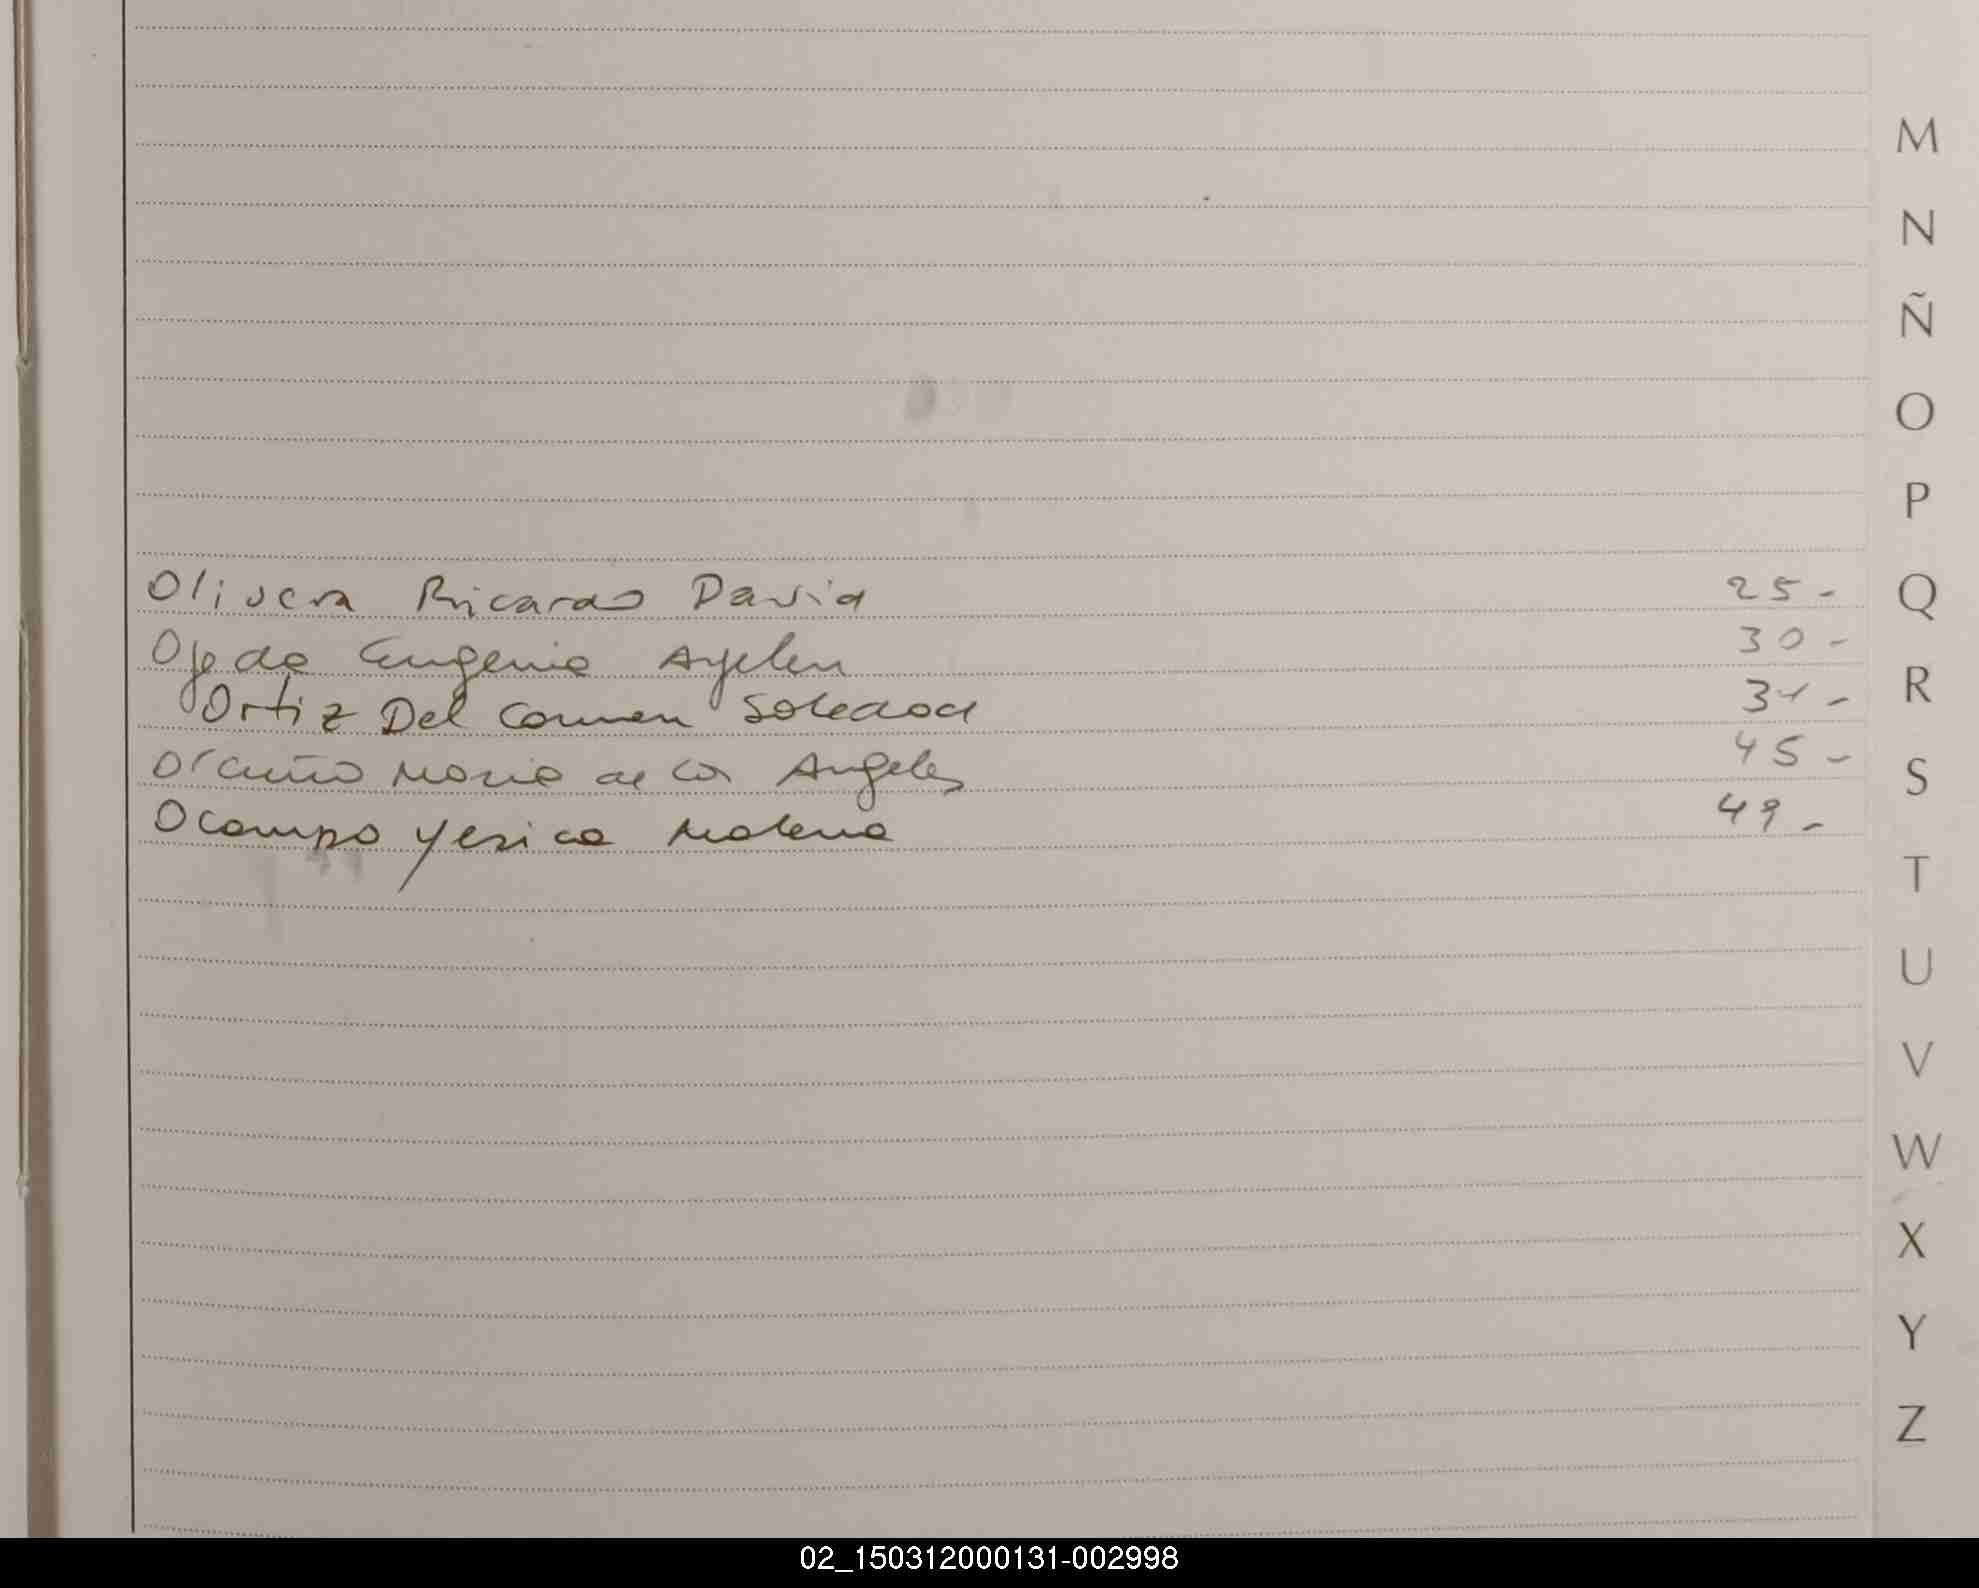 M
N
Ñ
O
P
Olivera Ricardo David 25-
Q
Ojeda Eugenia Ayelen 30-
R
Ortiz Del Carmen Soledad 31-
Maria de los Angeles 45-
S
Ocampo Yesica Malena 49-
T
U
V
W
X
Y
Z
02_150312000131-002998